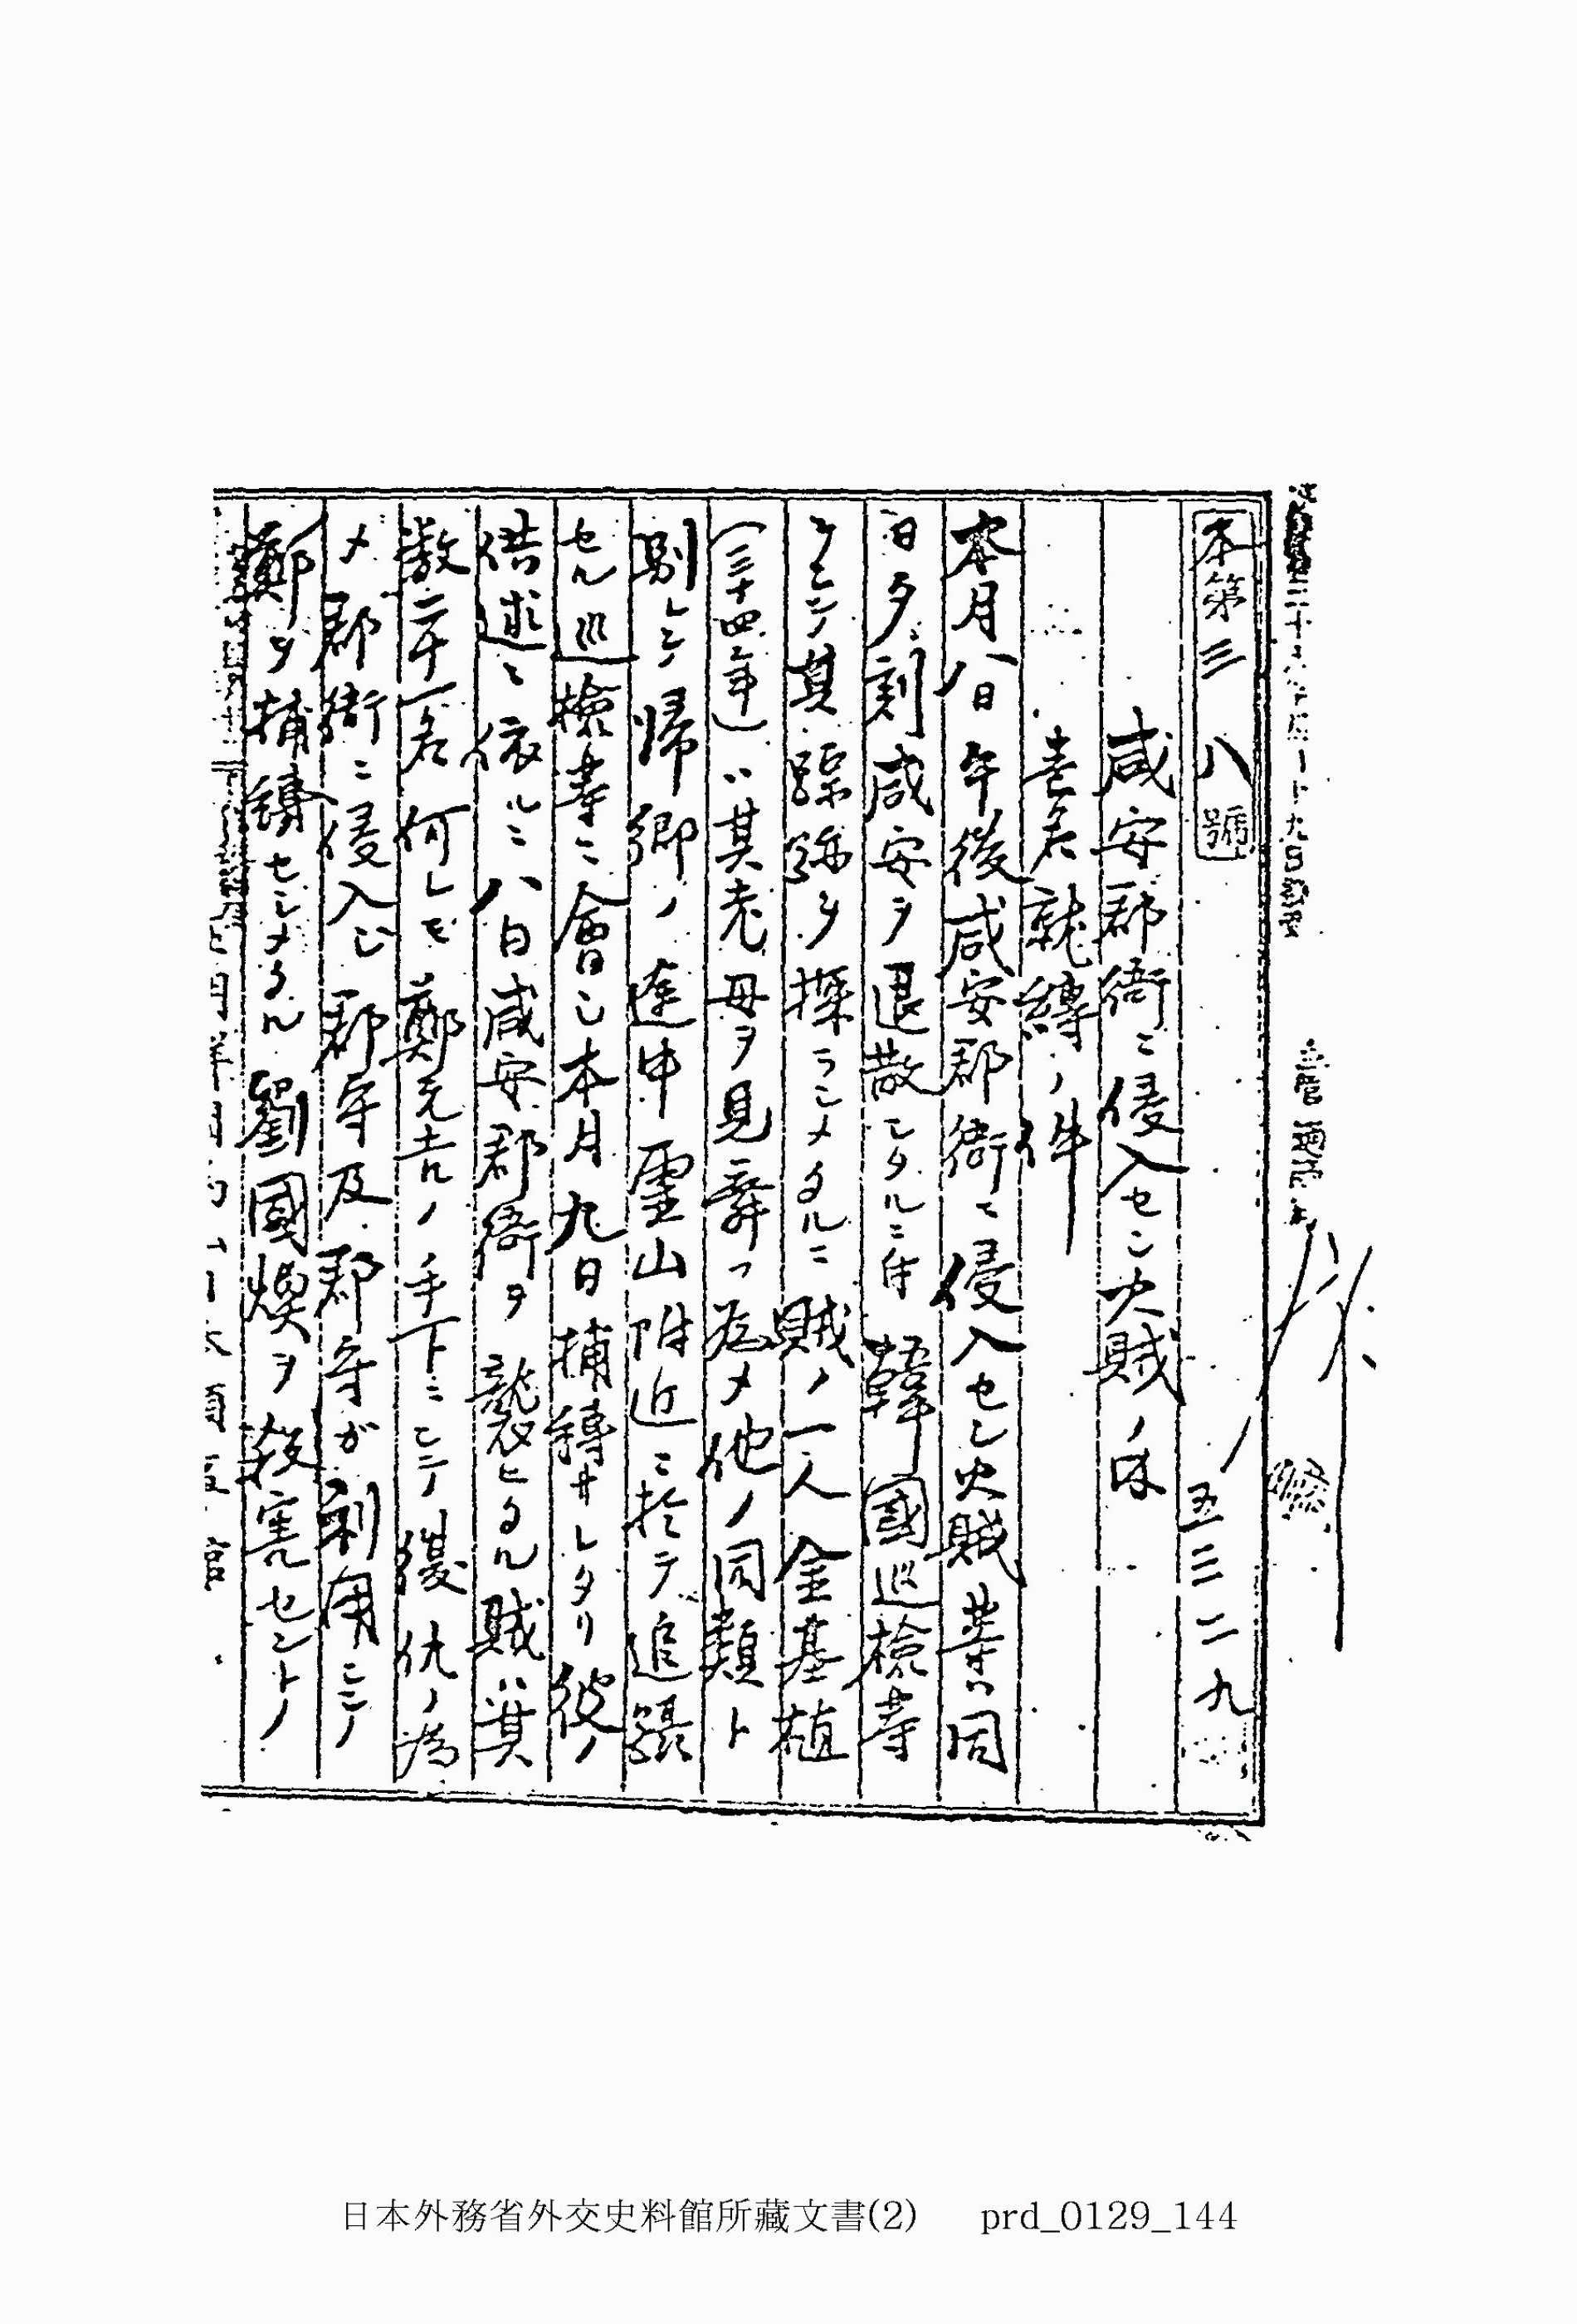 本第三八號
五三二九
咸安郡衙ニ侵入セシ火賊ノ内
壱名就縛ノ件
本月八日午後咸安郡衙ニ侵入セシ火賊業ハ同
日夕刻咸安ヲ退散シタルニ付韓國巡檢等
ヲシテ其踪跡ヲ探ラシメタルニ賊ノ一人金基植
(三十四年)ハ其老母ヲ見舞フ為メ他ノ同類ト
別レシテ帰郷ノ途中霊山附近ニ於テ追躡
セル巡檢等ニ會シ本月九日捕縛サレタリ彼ノ
供述ニ依ルニ八日咸安郡衙ヲ襲ヒタル賊ハ其
数二十一名何レモ鄭元吉ノ手下ニシテ復仇ノ為
メ郡衙ニ侵入シ郡守及郡守ガ利用シテ
鄭ヲ捕縛セシメタル劉國煥ヲ殺害セントノ
日本外務省外交史料館所藏文書(2) prd_0129_144